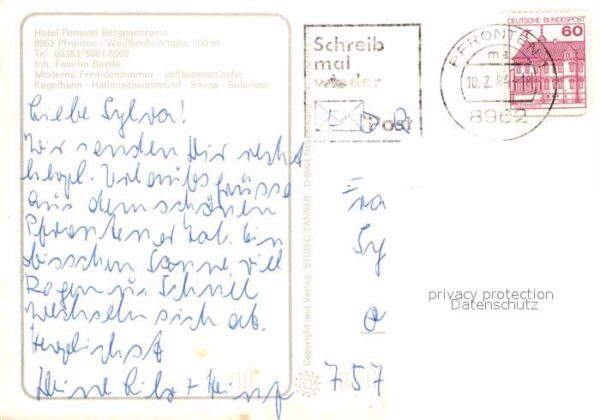 Hotel-Pension Bergpanorama
8962 Pfronten - Weißbach/Allgäu, 900 m
Tel. 08363/5001-5002
Inh. Familie Bertle
Moderne Fremdenzimmer - vollautomatische
Kegelbahn - Hallenschwimmbad - Sauna - Solarium
Liebe Sylva!
Wir senden Dir recht
herzl. Urlaubsgrüsse
aus dem schönen
Pfrontener Tal. Ein
bisschen Sonne, viel
Regen u. Schnee
wechseln sich ab.
Herzlichst
Deine + Heinz
Copyright und Verlag - STUDIO TANNER
Schreib
mal
wieder
Post
PFRONTEN
10.2.8
8962
DEUTSCHE BUNDESPOST
60
Fra
Sy
757
privacy protection
Datenschutz